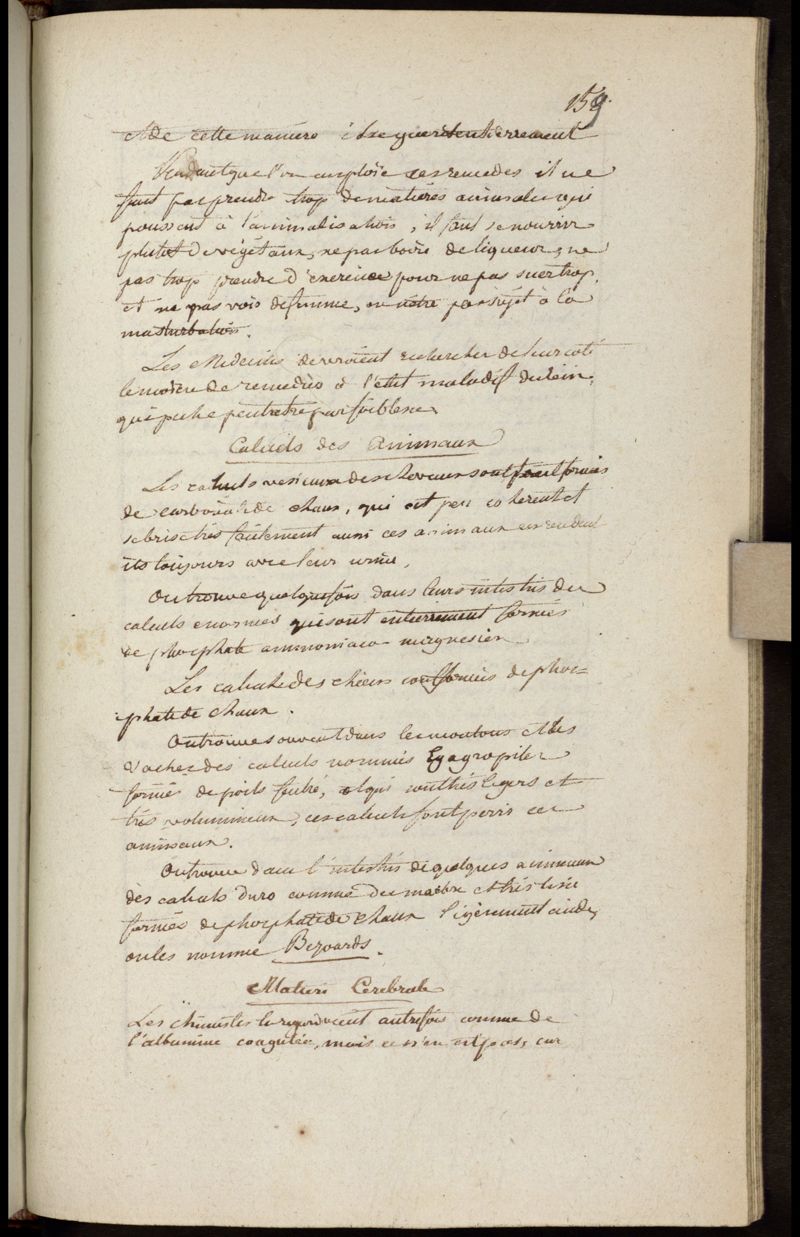 159.
et de cette maniere être gueri entierrement
Pendant que l'on emploie ces remedes il ne
faut pas prendre trop de matières animales qui
poussent à l'animalisation, il faut se nourrir
plutot de végétaux, ne pas boire de liqueur, ne
pas trop prendre d'exercice pour ne pas suer trop,
et ne pas voir de femme, ni être pas sujet à la
masturbation.
Les Medecins devroient rechercher de leur coté
le moien de remedier à l'etat maladif du rein,
qui peche peutetre par foiblesse
Calculs des Animaux
Les calculs vesicaux des chevaux sont tout formés
de carbonate de chaux, qui est peu coherent et
se brise très facilement aussi ces animaux en rendent
ils toujours avec leur urine.
On trouve quelquefois dans leurs intestins des
calculs enormes qui sont entierrement formés
de phosphate ammoniaco-magnesien
Les calculs des chiens sont formés de phos=
=phate de chaux.
On trouve souvent dans les moutons et les
vaches des calculs nommés Egagropiles
formés de poils feutré, et qui sont très legers et
très volumineux, ces calculs font perir ces
animaux.
On trouve dans l'intestin de quelques animaux
des calculs durs comme du marbre et très lisse
formés de phosphate de chaux légèrement acide,
on les nomme Bezoards.
Matiere Cerebrale
Les chimistes la regardoient autrefois comme de
l'albumine coagulée, mais ce n'en est pas, car